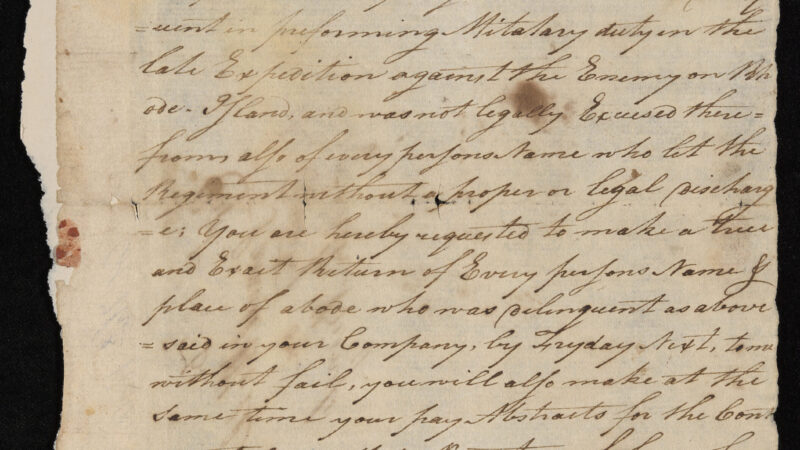 =uent in preforming Militalary duty in the
late Expedition against the Enemy on Rh
ode-Island, and was not legally Excused there=
from, also of every persons Name who let the
Regiment without a proper or legal discharg
=e; You are hereby requested to make a true
and Exact Return of Every persons Name &
place of abode who was delinquent as above
=said in your Company, by Fryday Next, to me
without fail, you will also make at the
same time your pay Abstracts for the Cont